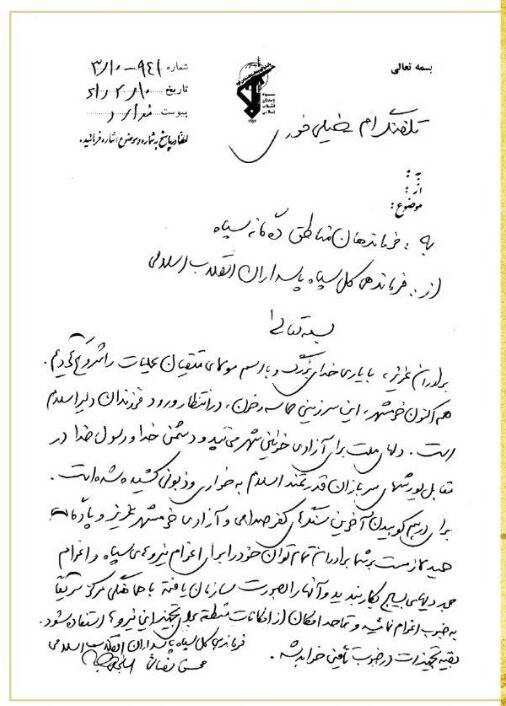 بسمه تعالی
شماره ۹۴۱-۳/۱۰
تاریخ ۶۱/۲/۱۰
پیوست ندارد
لطفاً در پاسخ به شماره و موضوع اشاره فرمائید.
تلفنگرام خیلی فوری
به :
از :
موضوع :
به : فرماندهان مناطق ده گانه سپاه
از : فرماندهی کل سپاه پاسداران انقلاب اسلامی
بسمه تعالی
برادران عزیز، با یاری خدای بزرگ و با رسم مولای متقیان عملیات را شروع کردیم.
هم اکنون خرمشهر، این سرزمین حماسه و خون، در انتظار ورود فرزندان دلیر اسلام
است. دلهای ملت برای آزادی خونین شهر می تپد و دشمن خدا و رسول خدا در
مقابل یورشهای سربازان قدرتمند اسلام به خواری و ذبونی کشیده شده است.
برای درهم کوبیدن آخرین سنگرهای کفر صدامی و آزادی خرمشهر عزیز و
لازمست شما برادران تمام توان خود را برای اعزام نیروهای سپاه و اعزام
بسیج بکار بندید و آنها را بصورت سازمان یافته با هماهنگی مرکز سریعاً
به جنوب اعزام نمائید و تا حد امکان از امکانات منطقه برای تجهیز این نیروها استفاده شود.
بقیه تجهیزات در جنوب تأمین خواهد شد.
فرماندهی کل سپاه پاسداران انقلاب اسلامی
محسن رضائی